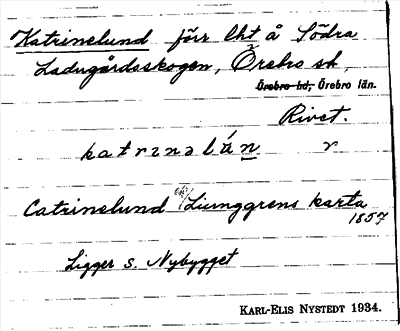 Katrinelund förr lht å Södra
Ladugårdsskogen, Örebro sk,
Örebro hd, Örebro län.
Rivet.
katrinelún r
Catrinelund enl. Ljunggrens karta
1857
Ligger S. Nybygget
KARL-ELIS NYSTEDT 1934.